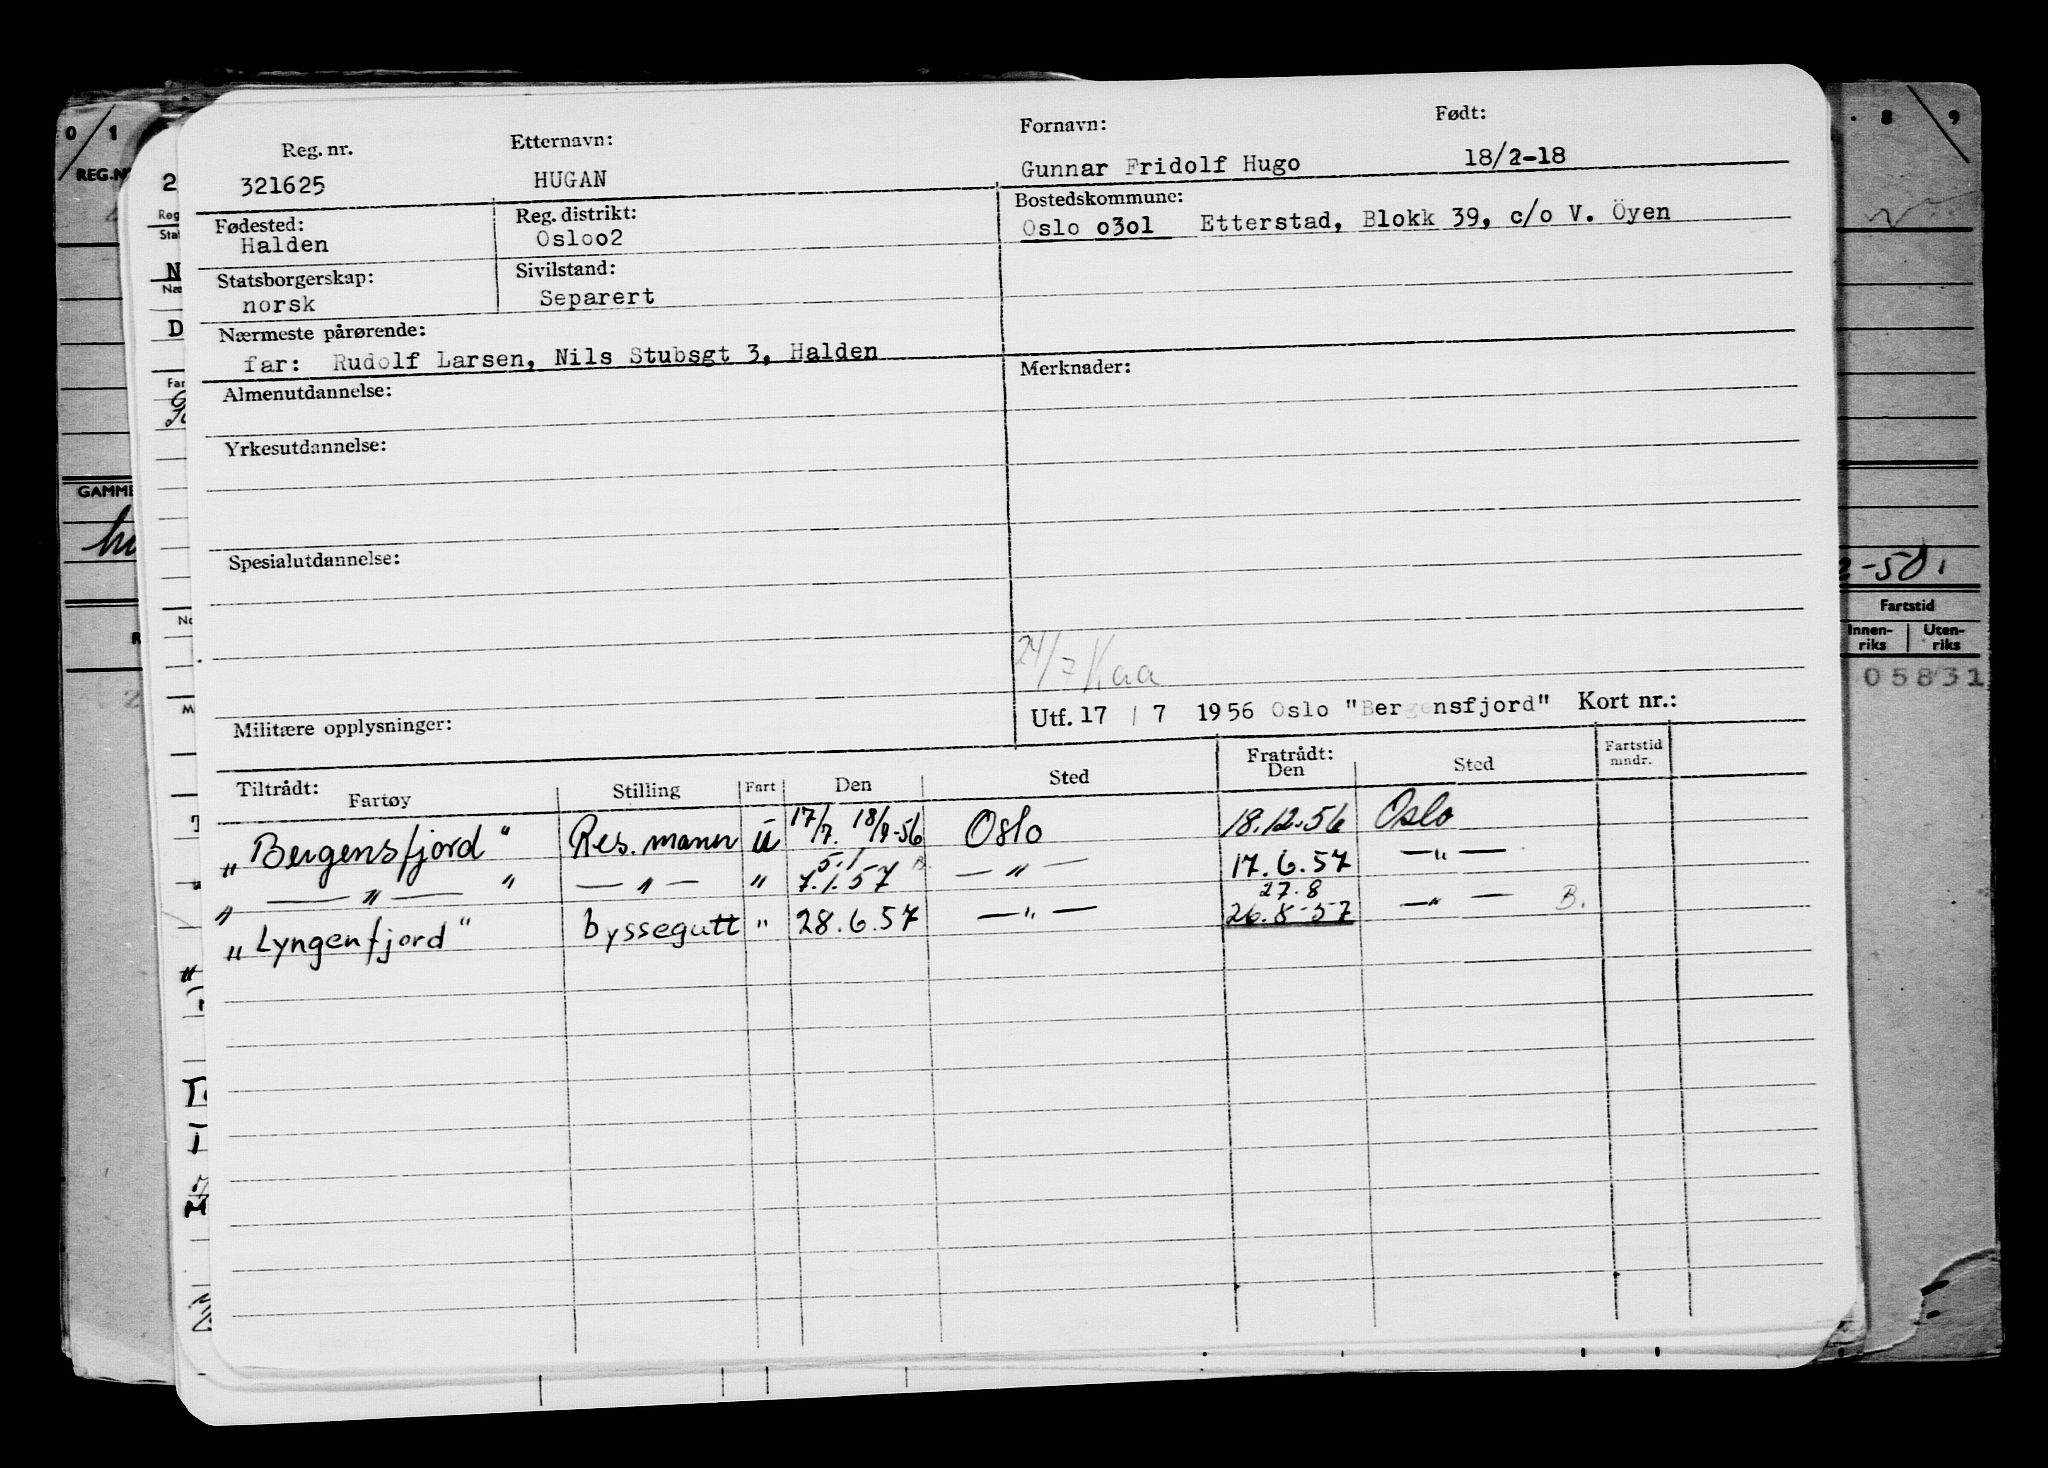 Reg. nr. Etternavn: Fornavn: Født:
321625 HUGAN Gunnar Fridolf Hugo 18/2-18
Fødested: Reg. distrikt: Bostedskommune:
Halden Oslo02 Oslo 0301 Etterstad, Blokk 39, c/o V. Öyen
Statsborgerskap: Sivilstand:
norsk Separert
Nærmeste pårørende:
far: Rudolf Larsen, Nils Stubsgt 3, Halden
Almenutdannelse: Merknader:
Yrkesutdannelse:
Spesialutdannelse:
24/7
Militære opplysninger: Utf. 17 / 7 1956 Oslo "Bergensfjord" Kort nr.:
Tiltrådt: Fartøy Stilling Fart Den Sted Fratrådt: Den Sted Fartstid mndr.
„Bergensfjord" Res. mann U 17/7. 18/7-56 Oslo 18.12.56 Oslo
" — " — " — " — " 5.1 7.1.57 B. — " — 17.6.57 — " —
„Lyngenfjord" byssegutt " 28.6.57 — " — 27.8 26.8-57 — " — B.
0 / 1
REG.N
GAMME
8 9
2-50.
Fartstid
Innen-riks Uten-riks
05831